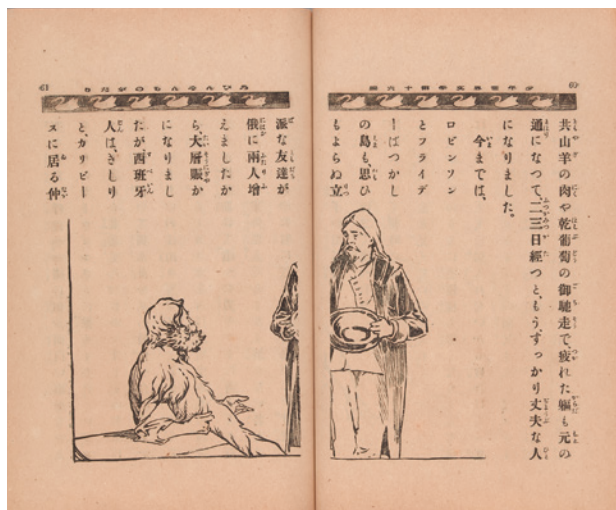 少年世界文學第十六編
60
共山羊の肉や乾葡萄の御馳走で、疲れた軀も元の
通になつて、二三日經つと、もう、すっかり丈夫な人
になりました。
今までは、
ロビンソン
とフライデ
ーばつかし
の島も、思ひ
もよらぬ立
ろびんそんものがたり
61
派な友達が
俄に兩人增
えましたか
ら、大層賑か
になりまし
たが西班牙
人は、きしり
と、カリビー
スに居る仲